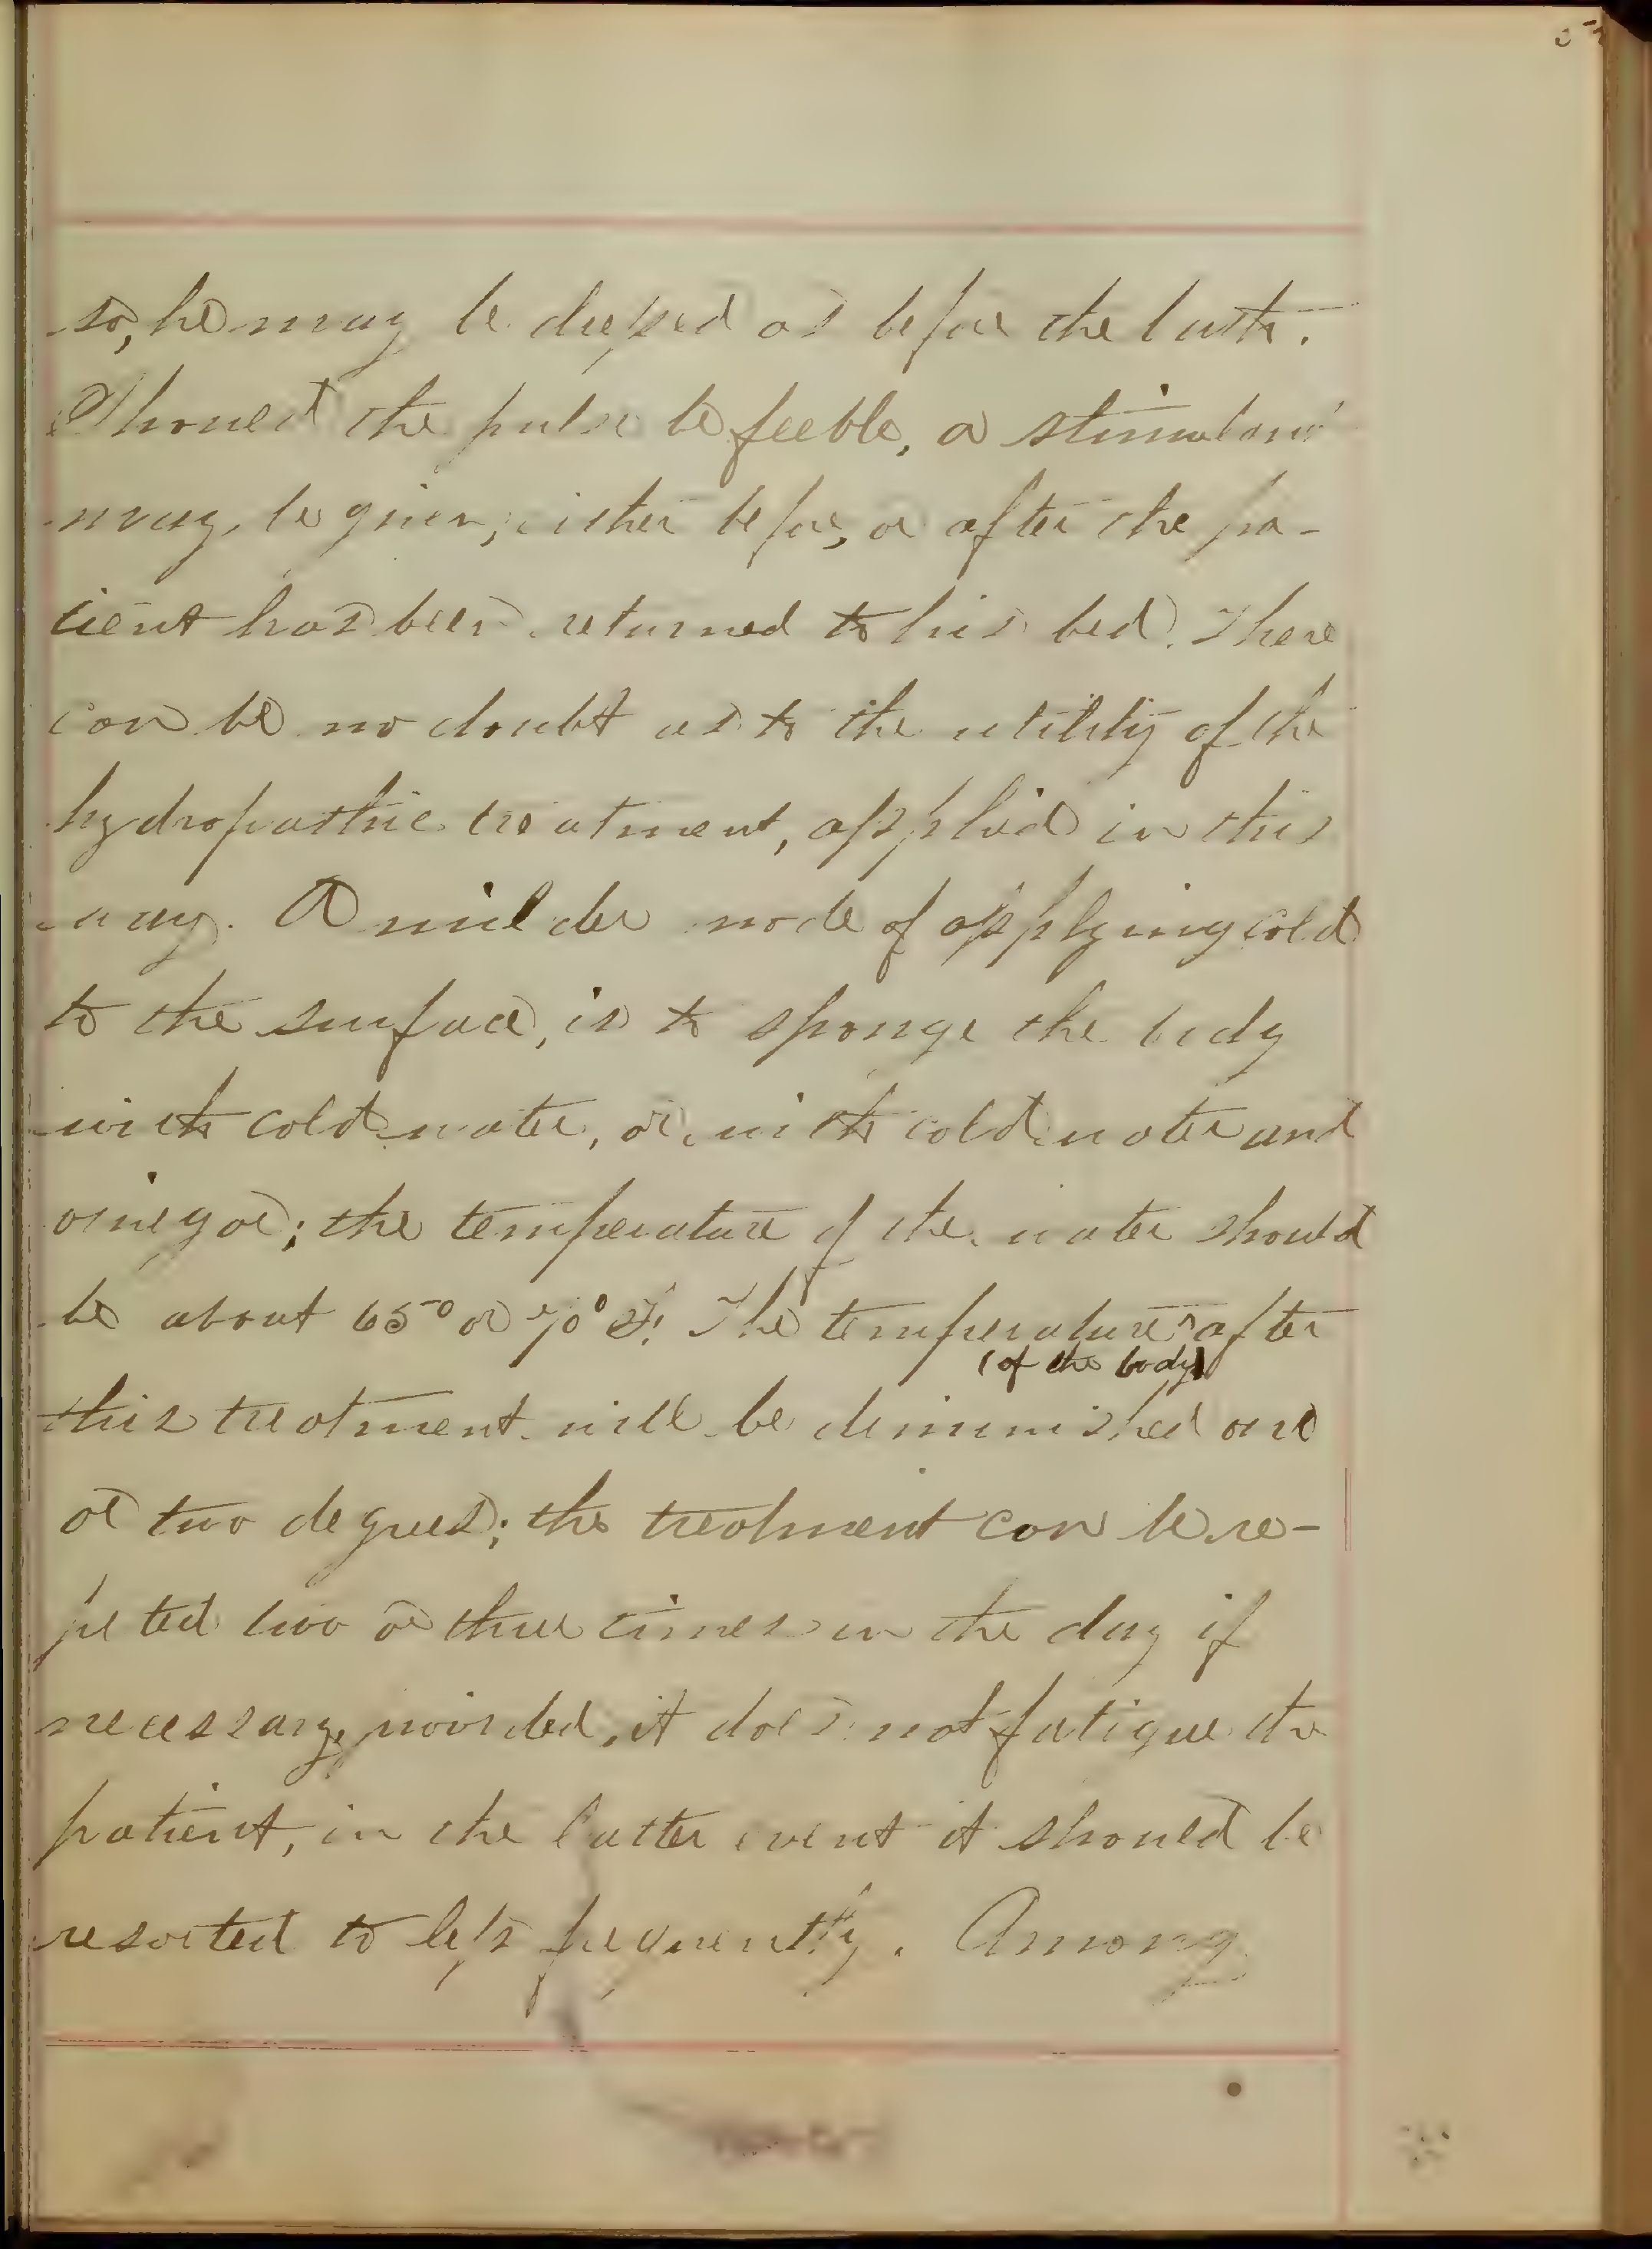 so, he may be dressed as before the bath.
Should the pulse be feeble, a stimulant
may, be given, either before, or after the pa-
tient has been returned to his bed. There
can be no doubt as to the utility of the
hydropathic treatment, applied in this
way. A milder mode of applying cold
to the surface, is to sponge the body
with cold water, or, with cold water and
vinegar; the temperature of the water should
be about 65° or 70° F. The temperature ^ after
(of the body)
this treatment will be diminished one
or two degrees; the treatment can be re-
peted two or three times in the day if
necessary, provided, it does not fatigue the
patient, in the latter event it should be
resorted to less frequently. Among